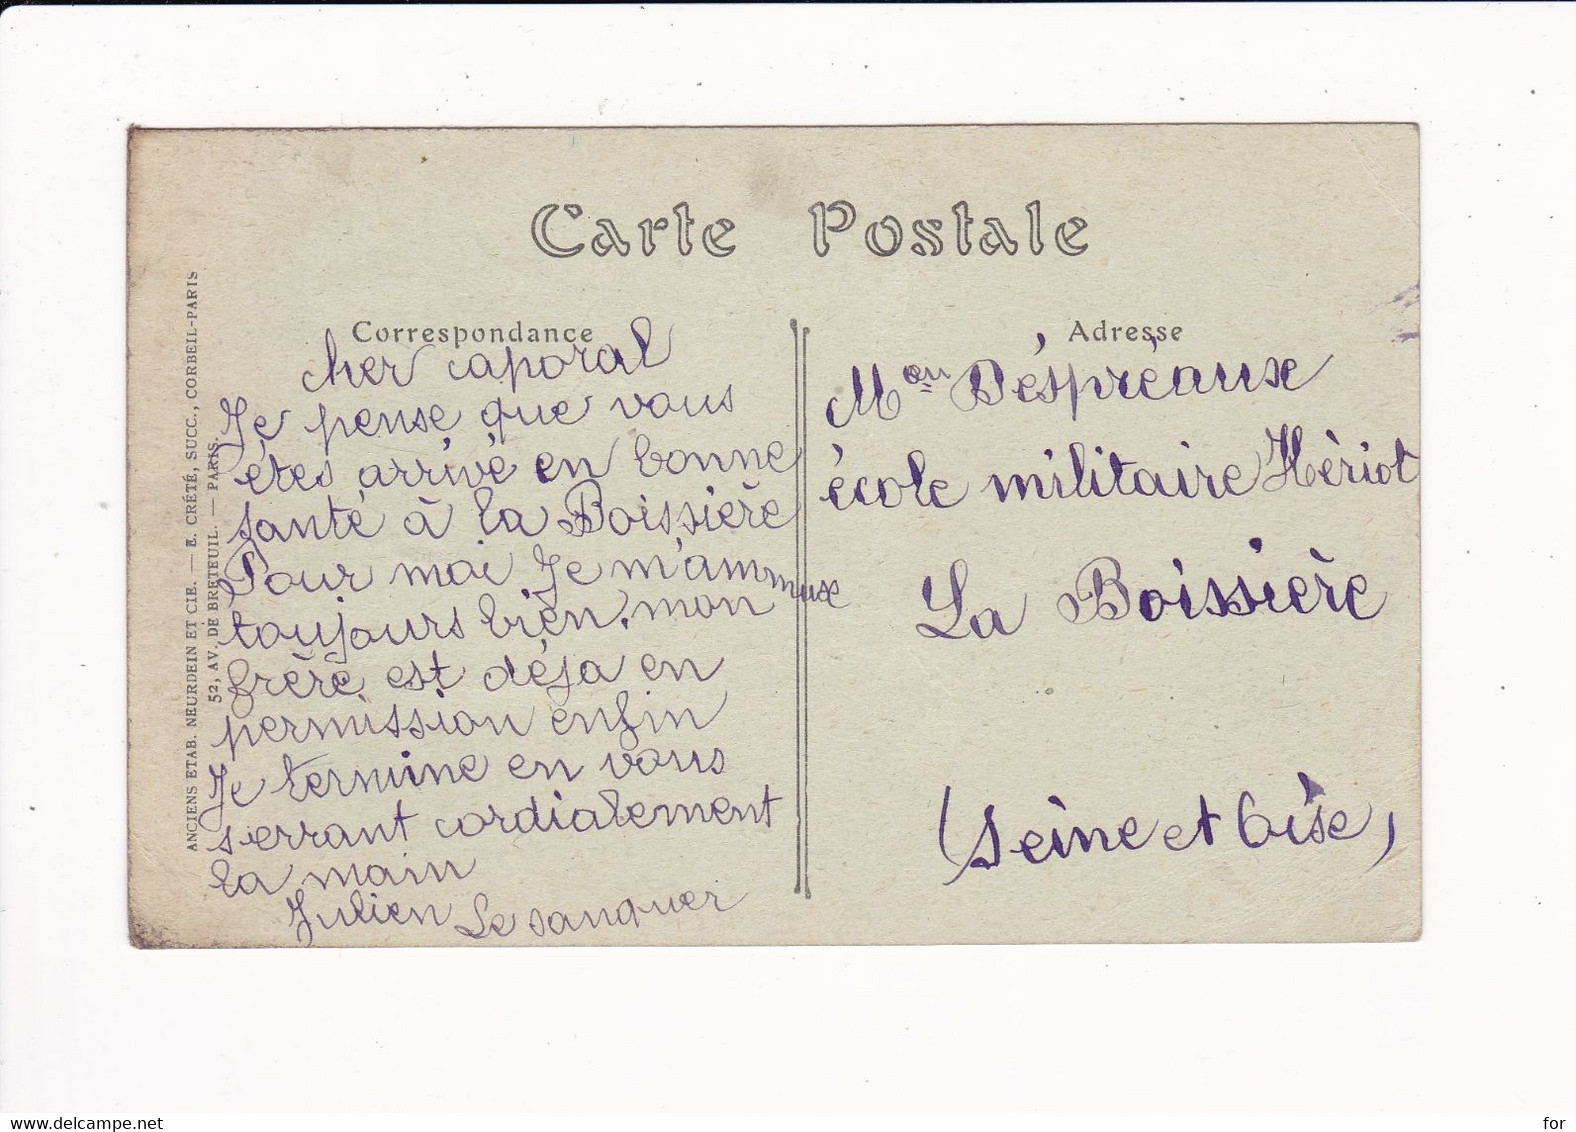 Carte Postale
Correspondance
cher caporal
Je pense que vous
étes arrivé en bonne
santé à la Boissière
Pour moi Je m'ammuse
toujours bien. mon
frère est déja en
permission enfin
Je termine en vous
serrant cordialement
la main
Julien Le sanquer
Adresse
Déspréaux
école militaire Hériot
La Boissière
(Seine et Oise)
ANCIENS ETAB. NEURDEIN ET CIE. — E. CRÉTÉ, SUCC., CORBEIL-PARIS
52, AV. DE BRETEUIL. — PARIS.
www.delcampe.net
for